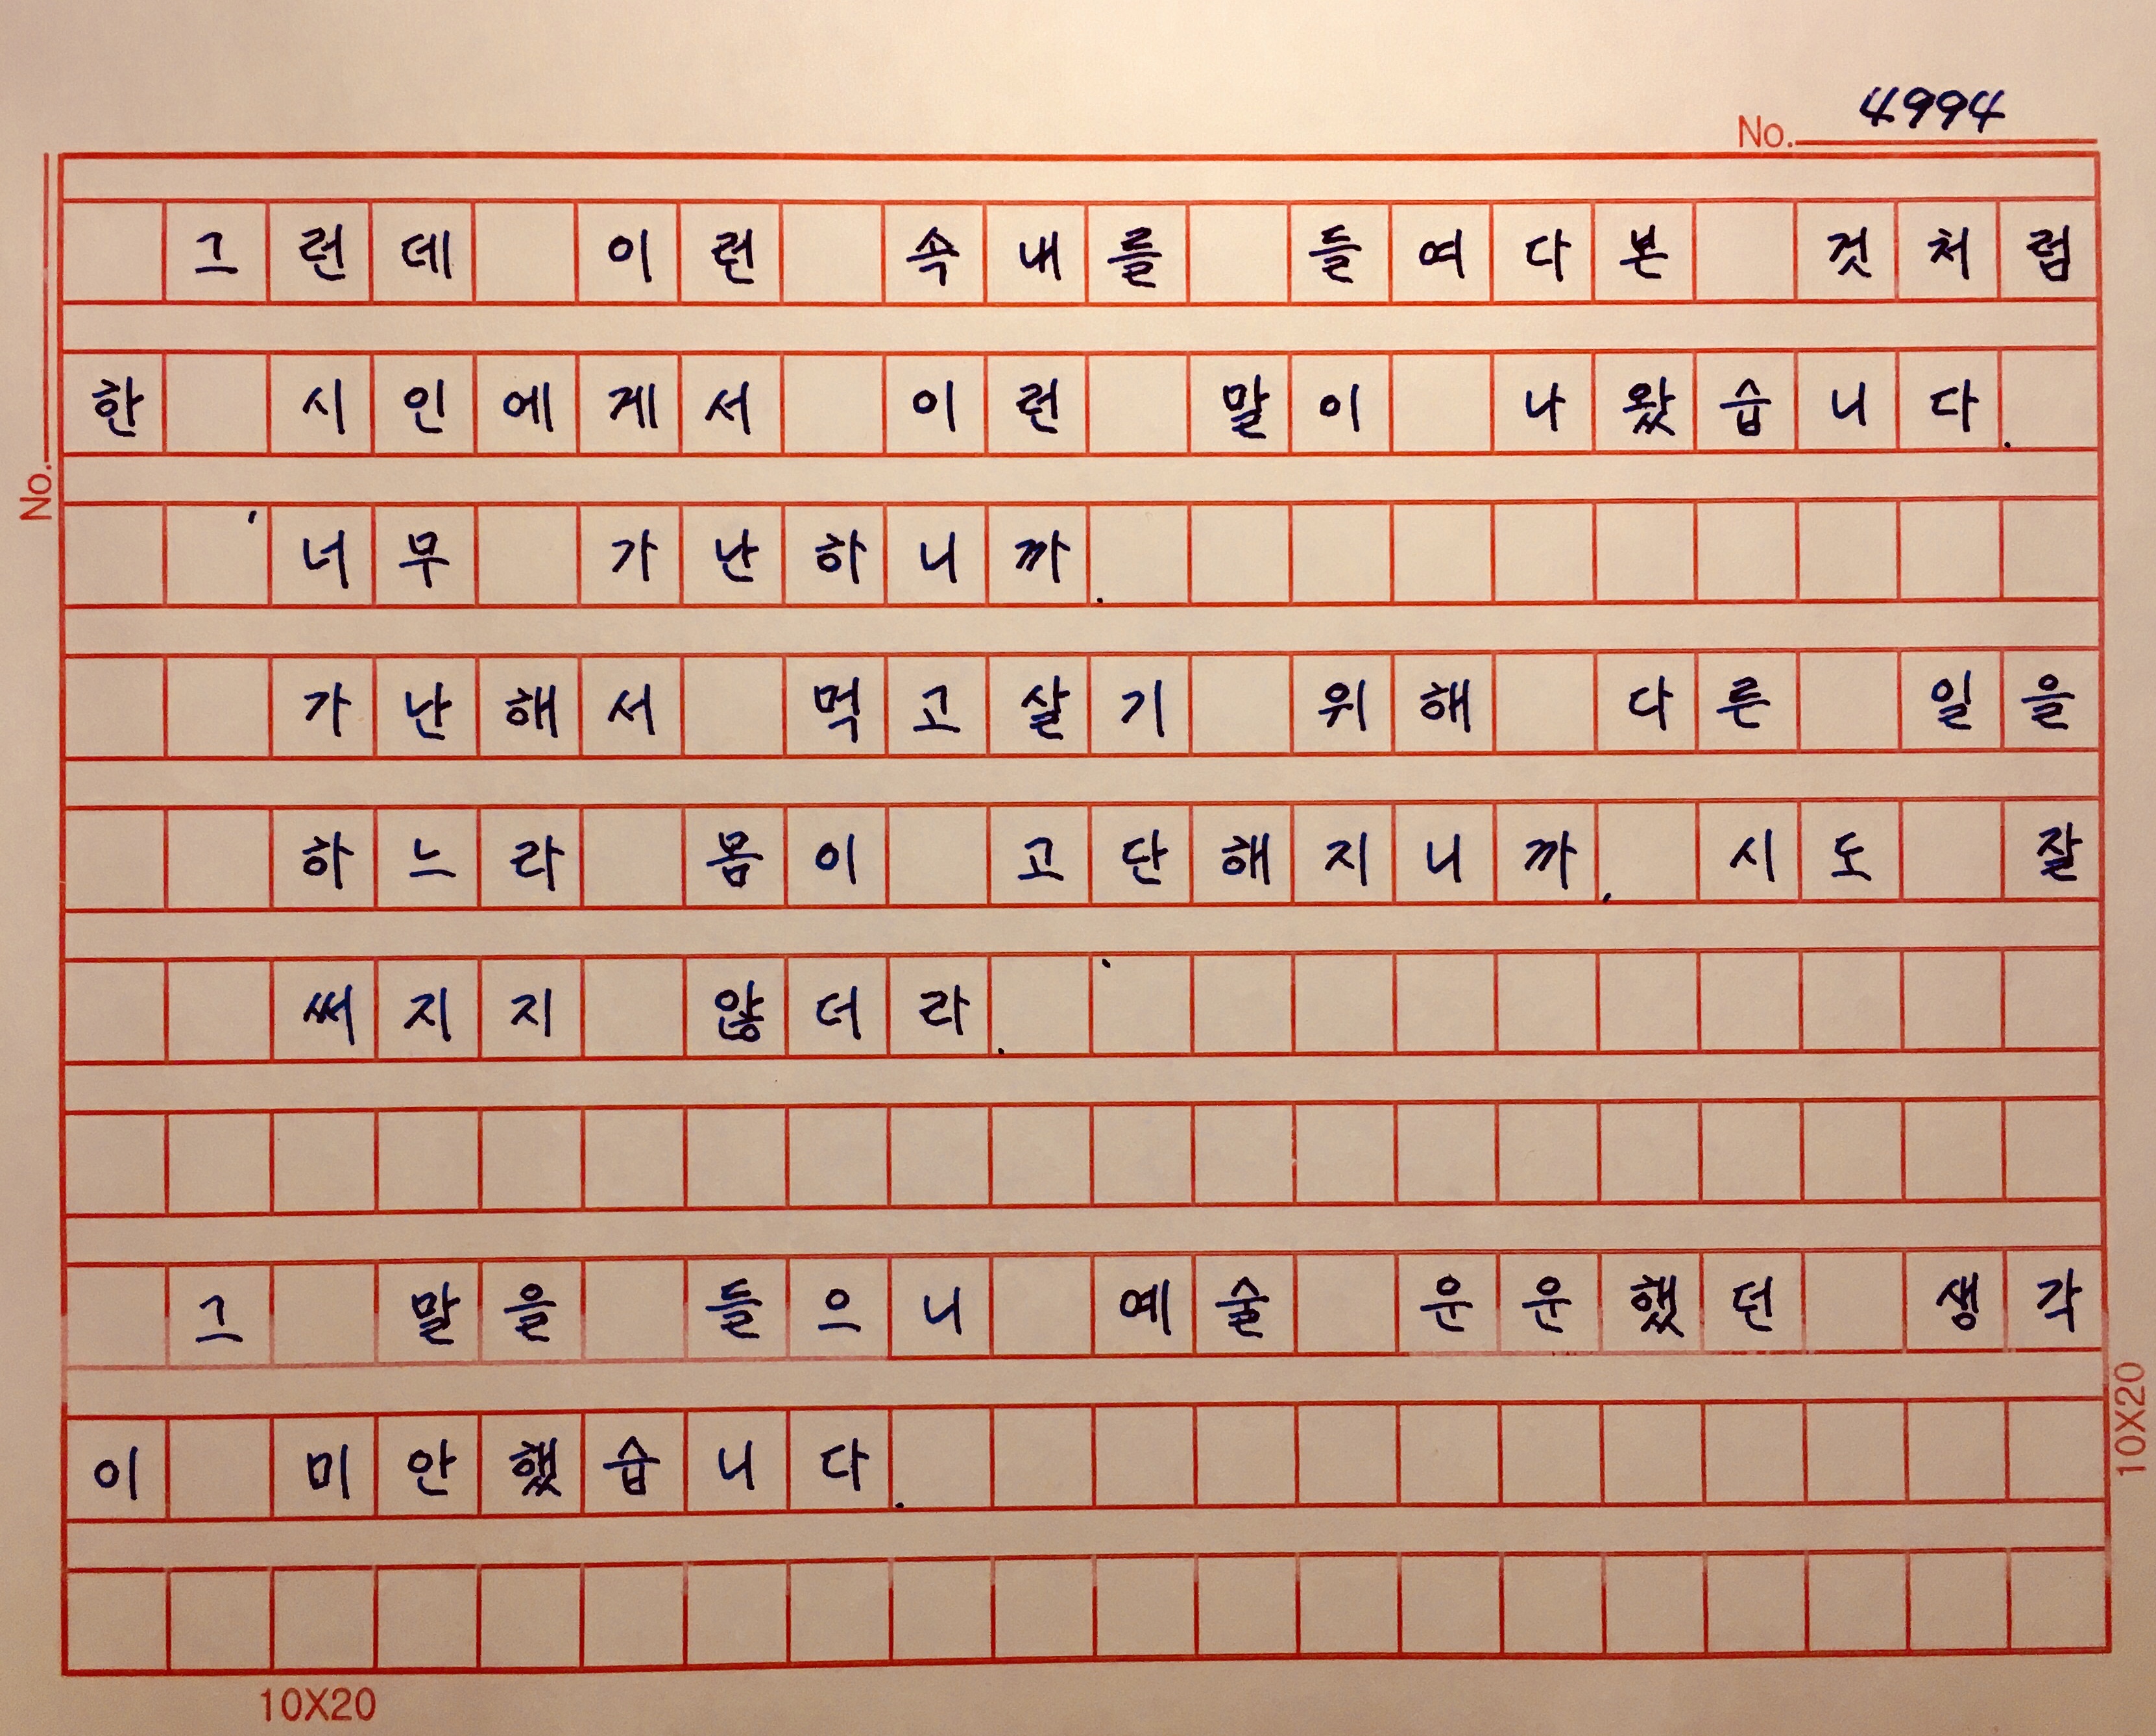 No. 4994
그런데 이런 속내를 들여다본 것처럼
한 시인에게서 이런 말이 나왔습니다.
'너무 가난하니까.
가난해서 먹고살기 위해 다른 일을
하느라 몸이 고단해지니까, 시도 잘
써지지 않더라.'
그 말을 들으니 예술 운운했던 생각
이 미안했습니다.
No.
10X20
10X20